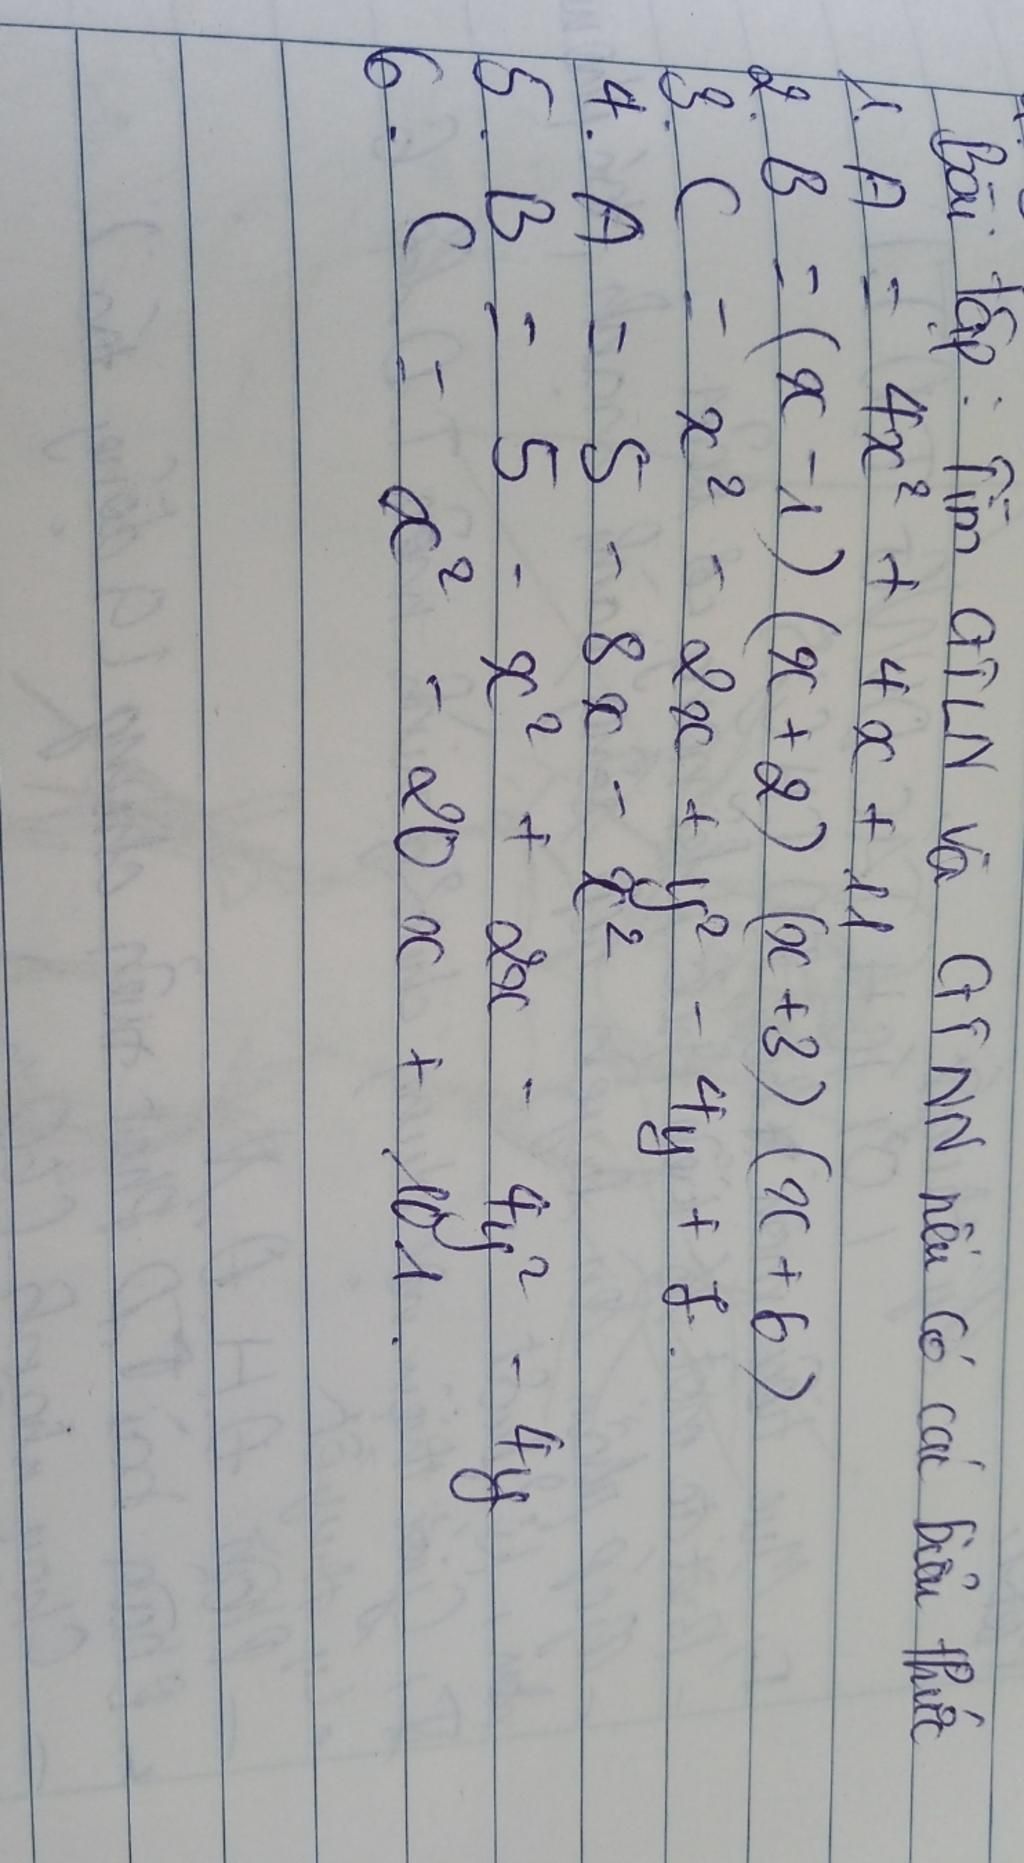 Bài tập : Tìm GTLN và GTNN nếu có các biểu thức
1. A = 4x² + 4x + 11
2. B = (x - 1) (x + 2) (x + 3) (x + 6)
3. C = x² - 2x + y² - 4y + 7.
4. A = 5 - 8x - x²
5. B = 5 - x² + 2x - 4y² - 4y
6. C = x² - 20x + 101.